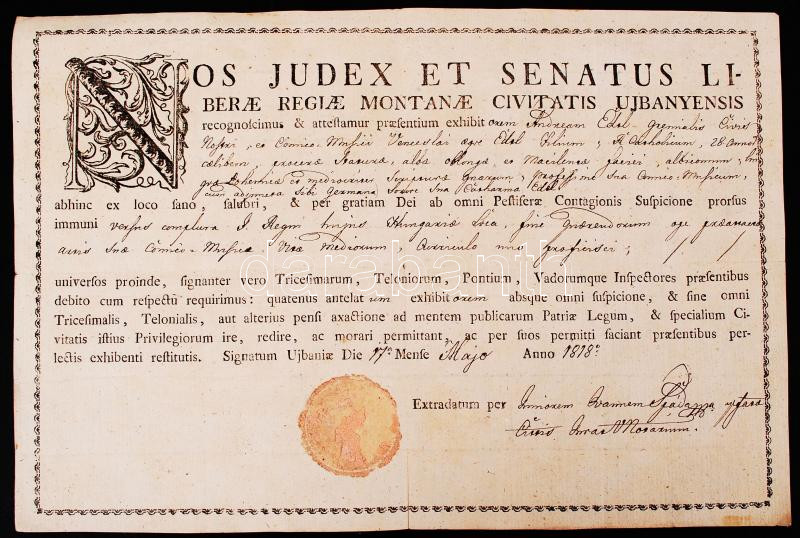 NOS JUDEX ET SENATUS LI-
BERÆ REGIÆ MONTANÆ CIVITATIS UJBANYENSIS
recognoscimus & attestamur præsentium exhibitorem Andream Edel Civis
Nostri, ex Comico Musici Venceslai Edel Filium, R. Catholicum, 28 Annor
cælibem, proceræ Staturæ, albæ oblongæ et faciei,
Bohemicæ et mediocriter Scripturæ Gnarum, Professione Sua Comico Musicum,
cum Sibi Germana Sorore Sua Catharina Edel
abhinc ex loco sano, salubri, & per gratiam Dei ab omni Pestiferæ Contagionis Suspicione prorsus
immuni versus complura I. Regni hujus Hungariæ Loca, fine Quærendorum ope
artis Suæ Comico-Musicæ Vitæ Mediorum proficisci;
universos proinde, signanter vero Tricesimarum, Teloniorum, Pontium, Vadorumque Inspectores præsentibus
debito cum respectu requirimus: quatenus antelatum exhibitorem absque omni suspicione, & sine omni
Tricesimalis, Telonialis, aut alterius pensi axactione ad mentem publicarum Patriæ Legum, & specialium Ci-
vitatis istius Privilegiorum ire, redire, ac morari permittant, ac per suos permitti faciant præsentibus per-
lectis exhibenti restitutis. Signatum Ujbaniæ Die 17a Mense Majo Anno 1818o
Extradatum per Juniorem Joannem
Notarium.
darabanth